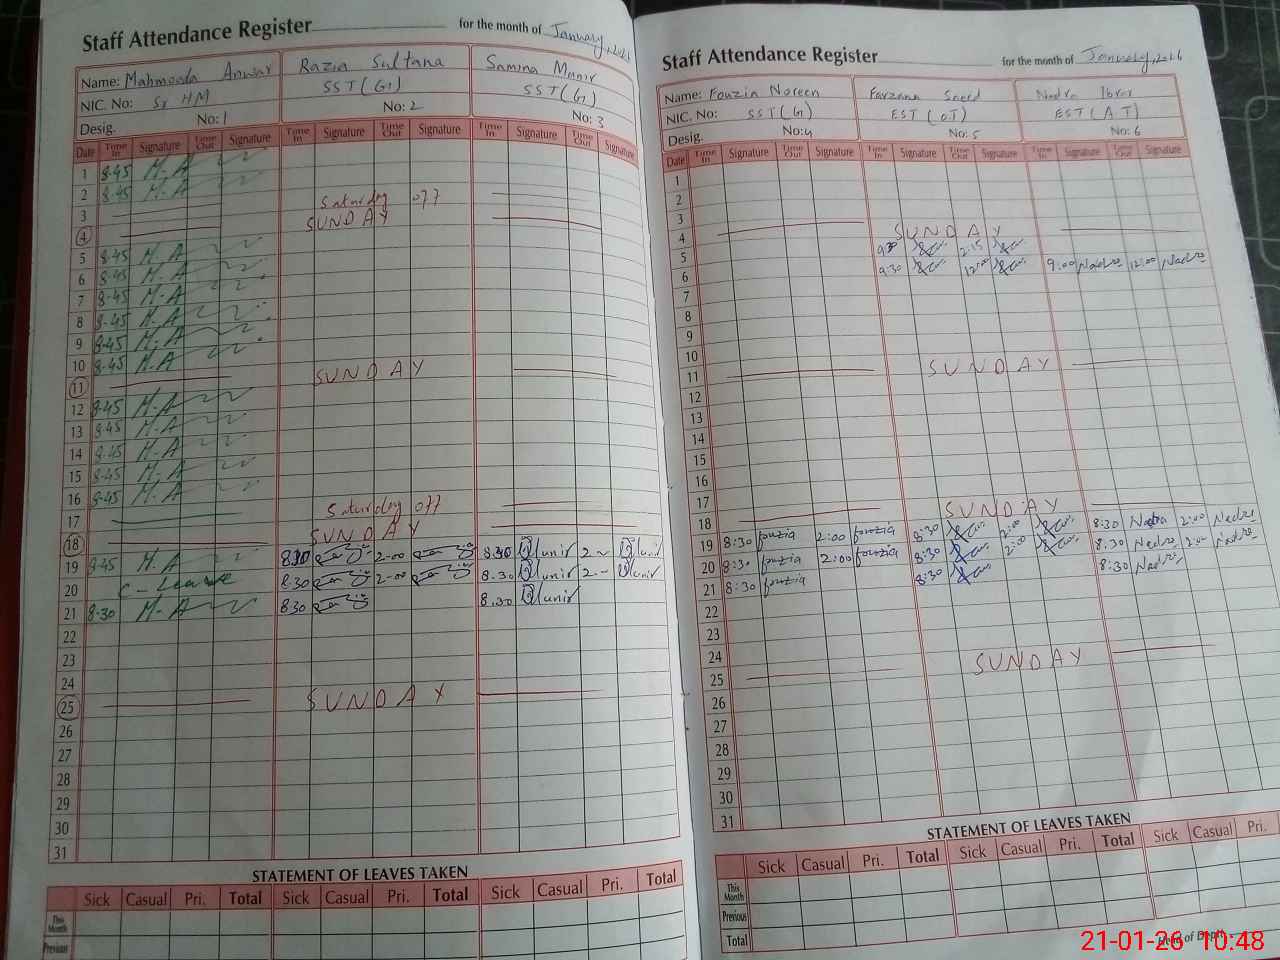 Staff Attendance Register for the month of January, 2026
Name: Mahmooda Anwar Razia Sultana Samina Munir
NIC. No: Sr HM SST(G) SST(G)
Desig. No: 1 No: 2 No: 3
Date Time In Signature Time Out Signature Time In Signature Time Out Signature Time In Signature Time Out Signature
1 8.45 M.A
2 8.45 M.A
3 Saturday off
4 SUNDAY
5 8.45 M.A
6 8.45 M.A
7 8.45 M.A
8 8.45 M.A
9 8.45 M.A
10 8.45 M.A
11 SUNDAY
12 8.45 M.A
13 8.45 M.A
14 8.45 M.A
15 8.45 M.A
16 8.45 M.A
17 Saturday off
18 SUNDAY
19 8.45 M.A 8.30 2.00 8.30 Munir 2 - Munir
20 C - Leave 8.30 2.00 8.30 Munir 2 - Munir
21 8.30 M.A 8.30 8.30 Munir
22
23
24
25 SUNDAY
26
27
28
29
30
31
STATEMENT OF LEAVES TAKEN
Sick Casual Pri. Total Sick Casual Pri. Total Sick Casual Pri. Total
This Month
Previous
Staff Attendance Register for the month of January, 2026
Name: Fouzia Noreen Farzana Saeed Nadra Ibrar
NIC. No: SST(G) EST(OT) EST(AT)
Desig. No: 4 No: 5 No: 6
Date Time In Signature Time Out Signature Time In Signature Time Out Signature Time In Signature Time Out Signature
1
2
3
4 SUNDAY
5 9.30 2:15
6 9.30 12:00 9:00 Nadra 12:00 Nadra
7
8
9
10
11 SUNDAY
12
13
14
15
16
17
18 SUNDAY
19 8:30 fouzia 2:00 fouzia 8:30 2:00 8:30 Nadra 2:00 Nadra
20 8:30 fouzia 2:00 fouzia 8:30 2:00 8:30 Nadra 2:00 Nadra
21 8:30 fouzia 8:30 8:30 Nadra
22
23
24
25 SUNDAY
26
27
28
29
30
31
STATEMENT OF LEAVES TAKEN
Sick Casual Pri. Total Sick Casual Pri. Total Sick Casual Pri.
This Month
Previous
Total
Head of Deptt.
21-01-26 10:48